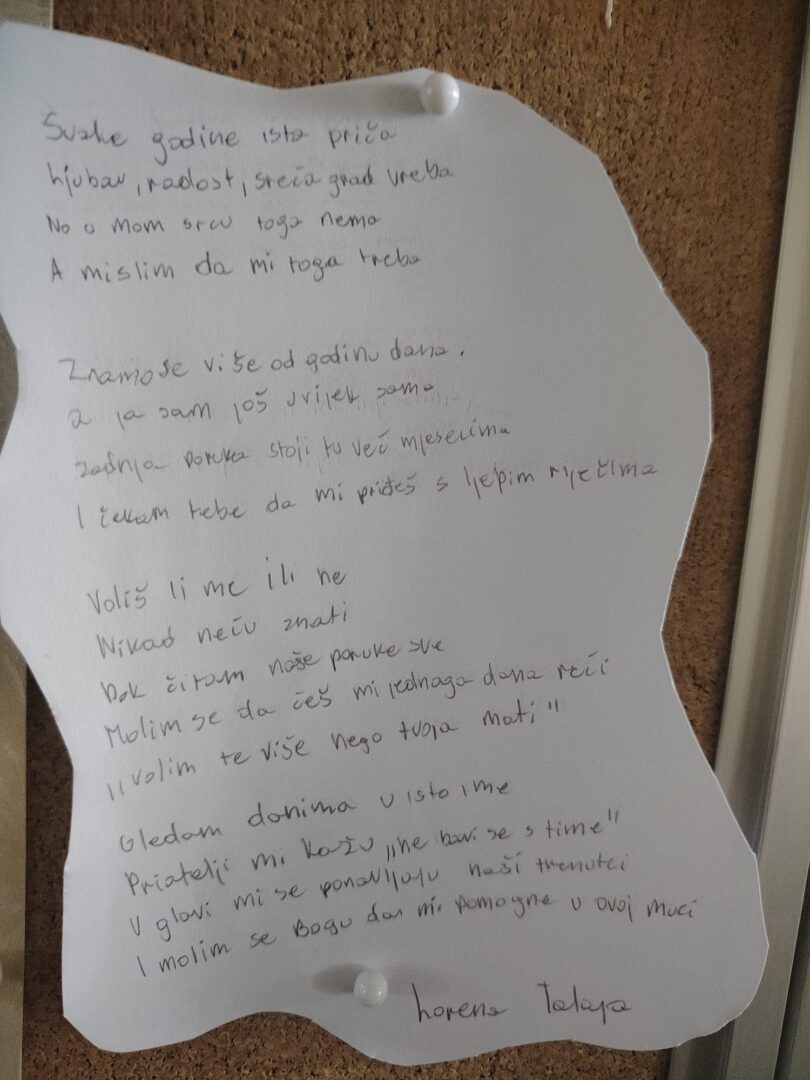 Svake godine ista priča
Ljubav, radost, sreća grad vreba
No u mom srcu toga nema
A mislim da mi toga treba
Znamo se više od godinu dana,
a ja sam još uvijek sama
zadnja poruka stoji tu već mjesecima
I čekam tebe da mi priđeš s ljepim riječima
Voliš li me ili ne
Nikad neću znati
Dok čitam naše poruke sve
Molim se da ćeš mi jednaga dana reći
"volim te više nego tvoja mati"
Gledam danima u isto ime
Priatelji mi kažu „ne bavi se s time"
V glavi mi se ponavljaju naši trenutci
I molim se Bogu da mi pomogne u ovoj muci
Lorena